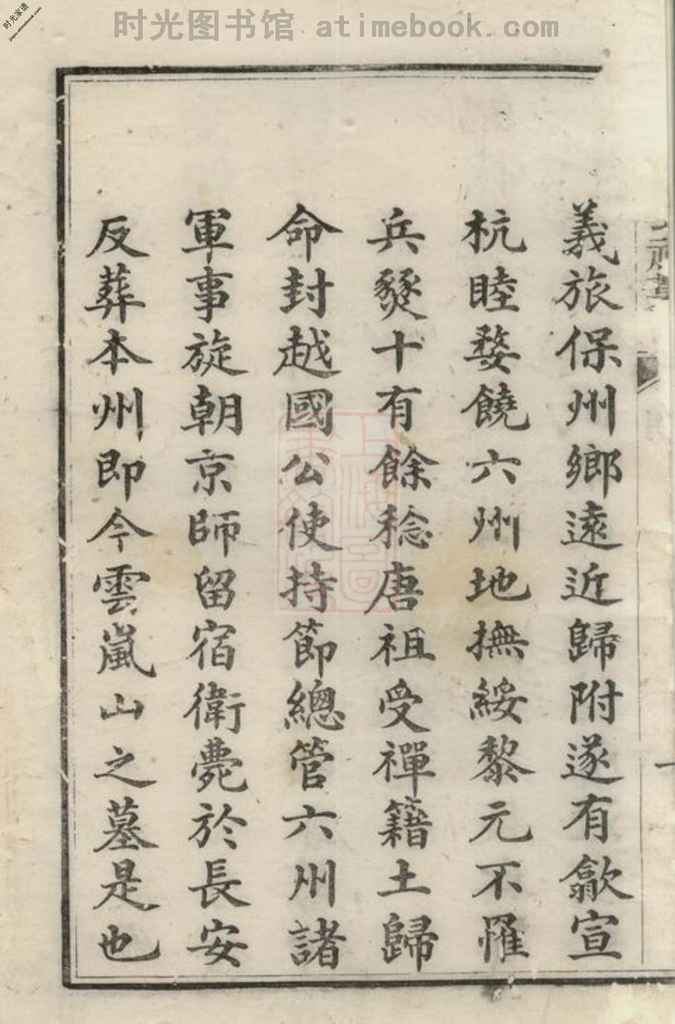 时光图书馆 atimebook.com
时光家谱
義旅保州鄉遠近歸附遂有歙宣
杭睦婺饒六州地撫綏黎元不罹
兵燹十有餘稔唐祖受禪籍土歸
命封越國公使持節總管六州諸
軍事旋朝京師留宿衛薨於長安
反葬本州即今雲嵐山之墓是也